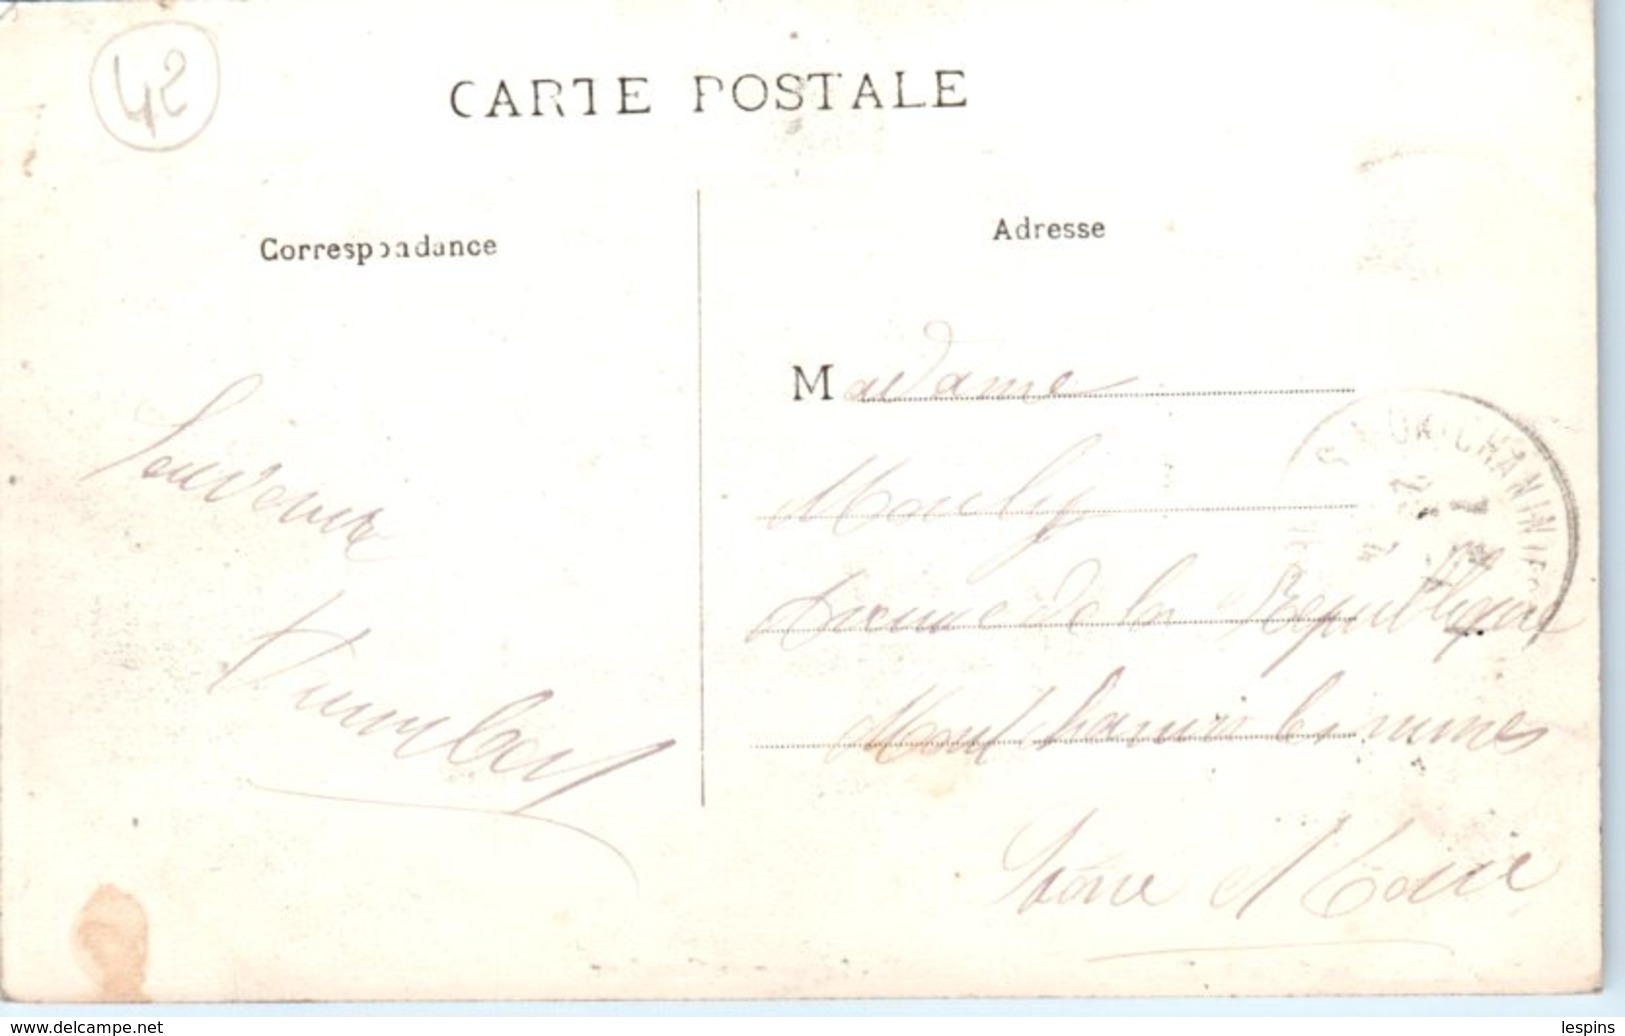 42
CARTE POSTALE
Correspondance
Adresse
Madame
Souvenir
Mouly
Avenue de la République
Montchanin les mines
Saône et Loire
www.delcampe.net
lespins